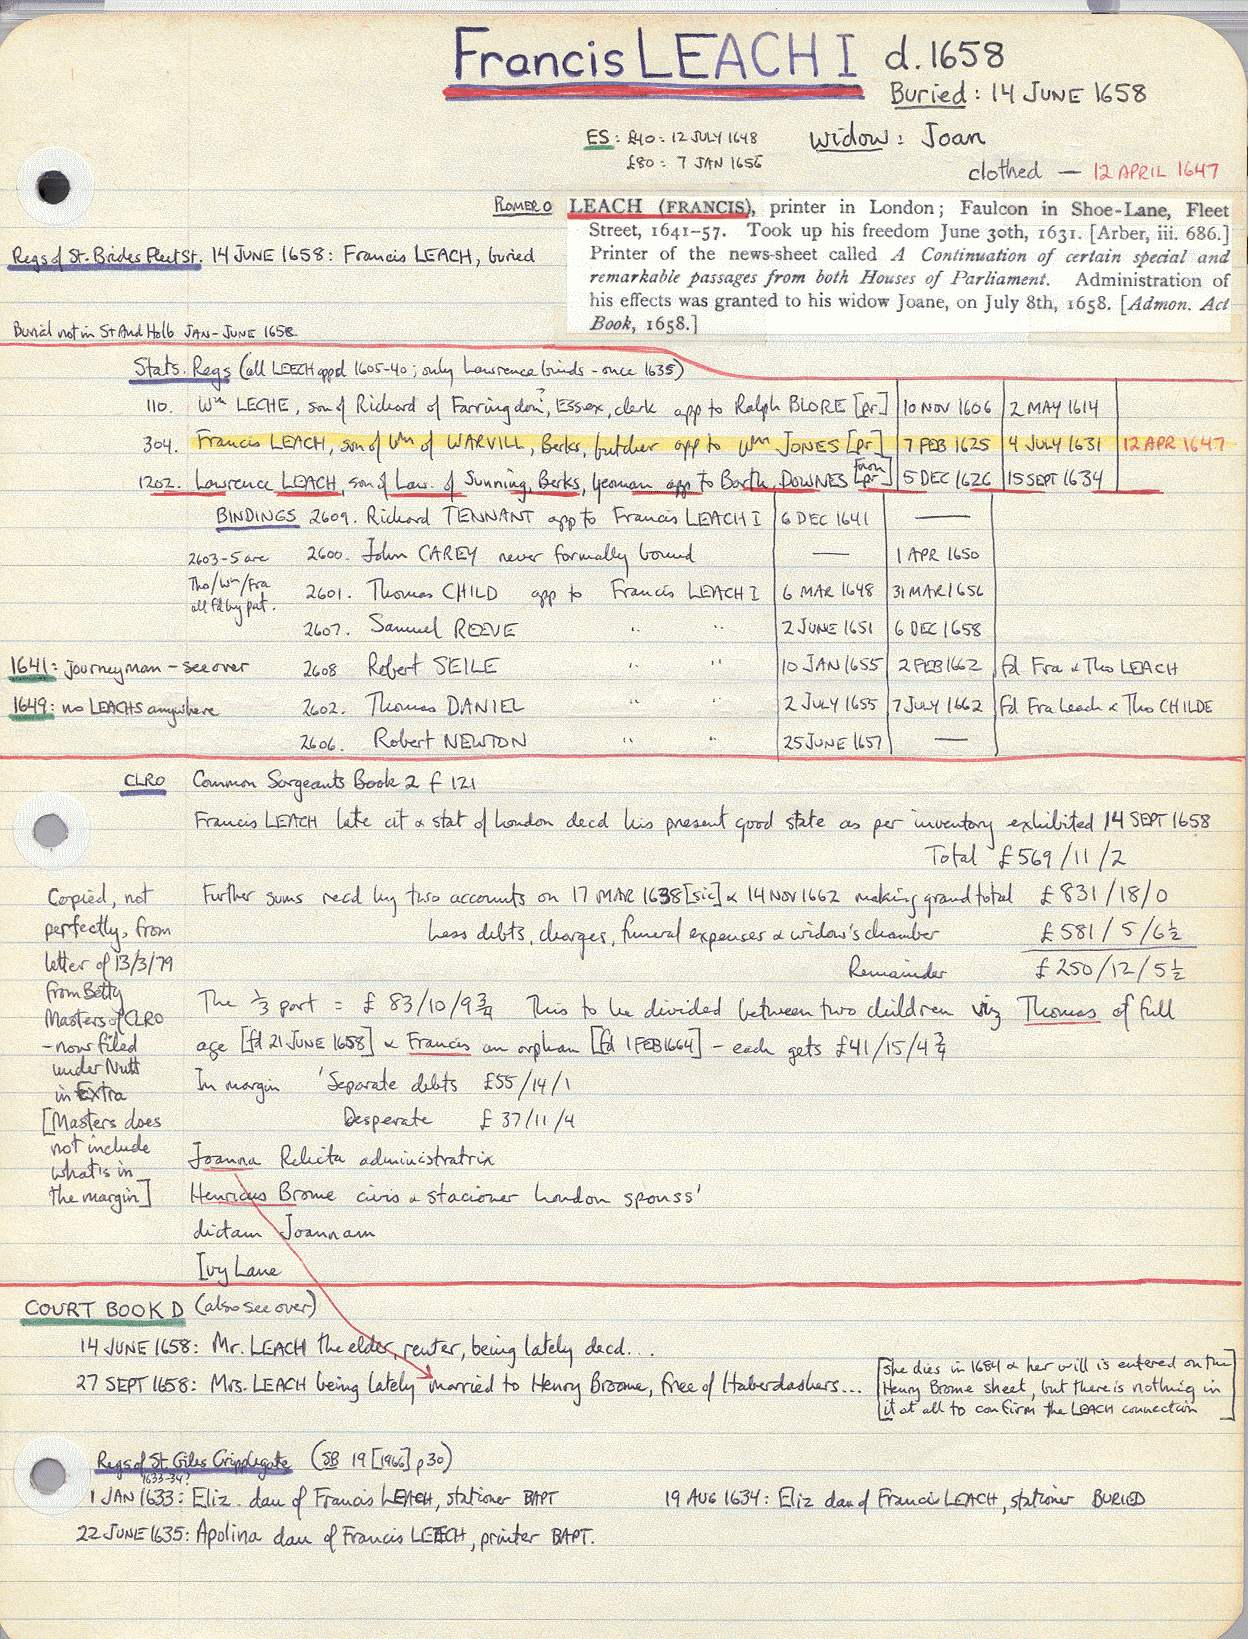 Francis LEACH I d. 1658
Buried: 14 JUNE 1658
ES: £40 = 12 JULY 1648
£80 = 7 JAN 1656
widow: Joan
clothed — 12 APRIL 1647
PLOMER O
LEACH (FRANCIS), printer in London; Faulcon in Shoe-Lane, Fleet
Street, 1641–57. Took up his freedom June 30th, 1631. [Arber, iii. 686.]
Printer of the news-sheet called A Continuation of certain special and
remarkable passages from both Houses of Parliament. Administration of
his effects was granted to his widow Joane, on July 8th, 1658. [Admon. Act
Book, 1658.]
Regs of St. Brides Fleet St. 14 JUNE 1658: Francis LEACH, buried
Burial not in St And Holb JAN–JUNE 1658
Stats. Regs (all LEECH appd 1605-40; only Lawrence binds - once 1635)
110. Wm LECHE, son of Richard of Farringdon?, Essex, clerk app to Ralph BLORE [pr] 10 NOV 1606 2 MAY 1614
304. Francis LEACH, son of Wm of WARVILL, Berks, butcher app to Wm JONES [pr] 7 FEB 1625 4 JULY 1631 12 APR 1647
1202. Lawrence LEACH, son of Law. of Sunning, Berks, yeoman app to Barth. DOWNES [pr] 5 DEC 1626 15 SEPT 1634
BINDINGS 2609. Richard TENNANT app to Francis LEACH I 6 DEC 1641 —
2600. John CAREY never formally bound — 1 APR 1650
2603-5 are
Tho/Wm/Fra
all fd by pat.
2601. Thomas CHILD app to Francis LEACH I 6 MAR 1648 31 MAR 1656
2607. Samuel REEVE " " 2 JUNE 1651 6 DEC 1658
1641: journeyman - see over
2608 Robert SEILE " " 10 JAN 1655 2 FEB 1662 fd Fra & Tho LEACH
1649: no LEACHS anywhere
2602. Thomas DANIEL " " 2 JULY 1655 7 JULY 1662 fd Fra Leach & Tho CHILDE
2606. Robert NEWTON " " 25 JUNE 1657 —
CLRO Common Sargeants Book 2 f 121
Francis LEACH late cit & stat of London decd his present good state as per inventory exhibited 14 SEPT 1658
Total £569/11/2
Further sums recd by two accounts on 17 MAR 1638 [sic] & 14 NOV 1662 making grand total £831/18/0
less debts, charges, funeral expenses & widow's chamber £581/5/6½
Remainder £250/12/5½
The ⅓ part = £83/10/9¾ This to be divided between two children viz Thomas of full
age [fd 21 JUNE 1658] & Francis an orphan [fd 1 FEB 1664] - each gets £41/15/4¾
In margin 'Separate debts £55/14/1
Desperate £37/11/4
Joanna Relicta administratrix
Henricus Brome civis & stacioner London spouss'
dictam Joannam
Ivy Lane
Copied, not
perfectly, from
letter of 13/3/79
from Betty
Masters of CLRO
- now filed
under Nutt
in Extra
[Masters does
not include
what is in
the margin]
COURT BOOK D (also see over)
14 JUNE 1658: Mr. LEACH the elder, renter, being lately decd...
27 SEPT 1658: Mrs. LEACH being lately married to Henry Broome, free of Haberdashers...
[She dies in 1684 & her will is entered on the
Henry Brome sheet, but there is nothing in
it at all to confirm the LEACH connection]
Regs of St Giles Cripplegate (SB 19 [1966] p 30)
1633-34?
1 JAN 1633: Eliz. dau of Francis LEACH, stationer BAPT
19 AUG 1634: Eliz dau of Francis LEACH, stationer BURIED
22 JUNE 1635: Apolina dau of Francis LEECH, printer BAPT.